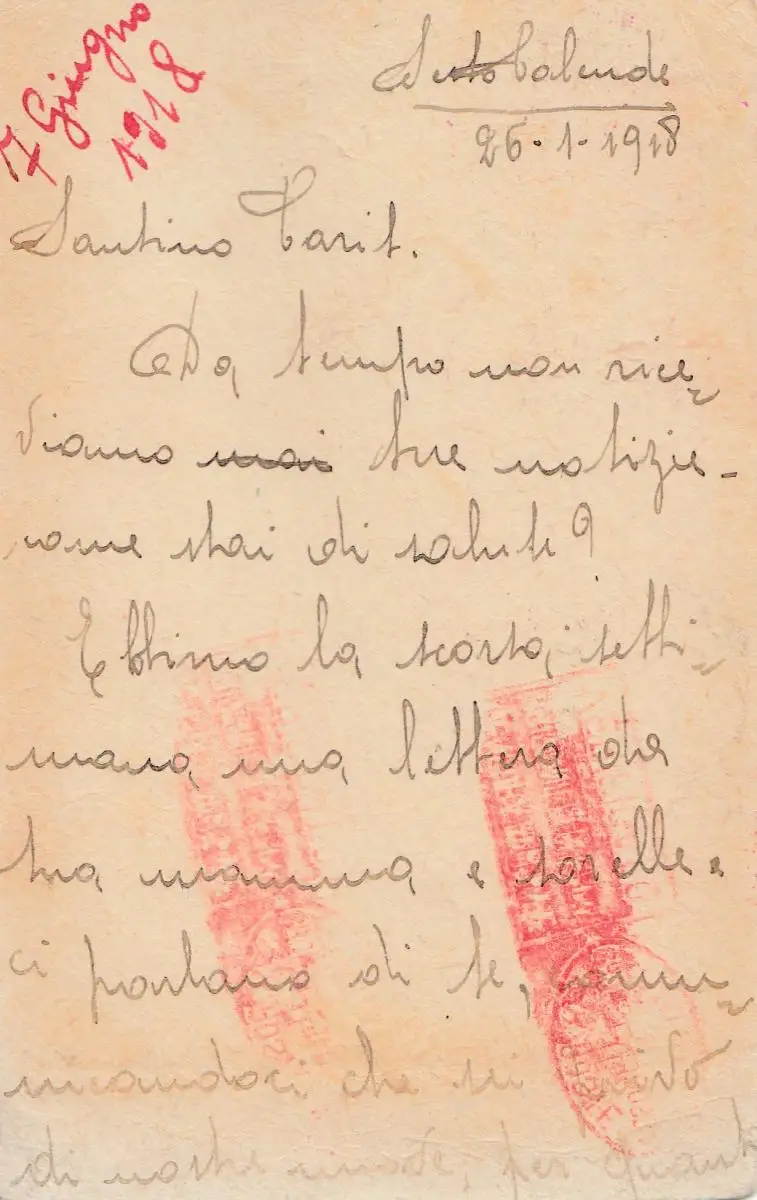 7 Giugno
1918
Sesto Calende
26-1-1918
Santino Carit.
Da tempo non rice=
viamo mai tue notizie -
come stai di salute?
Ebbimo la scorsa setti=
mana una lettera da
tua mamma e sorelle e
ci parlano di te, comu=
nicandoci che sei privo
di nostre nuove, per quanto